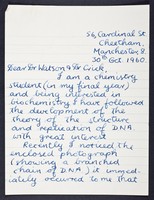 56, Cardinal St
Cheetham,
Manchester 8.
30th Oct 1960.
Dear Dr Watson & Dr Crick,
I am a chemistry
student (in my final year)
and being interested in
biochemistry I have followed
the development of the
theory of the structure
and replication of DNA
with great interest.
Recently I noticed the
enclosed photograph
(showing a branched
chain of DNA) it immed-
iately occurred to me that